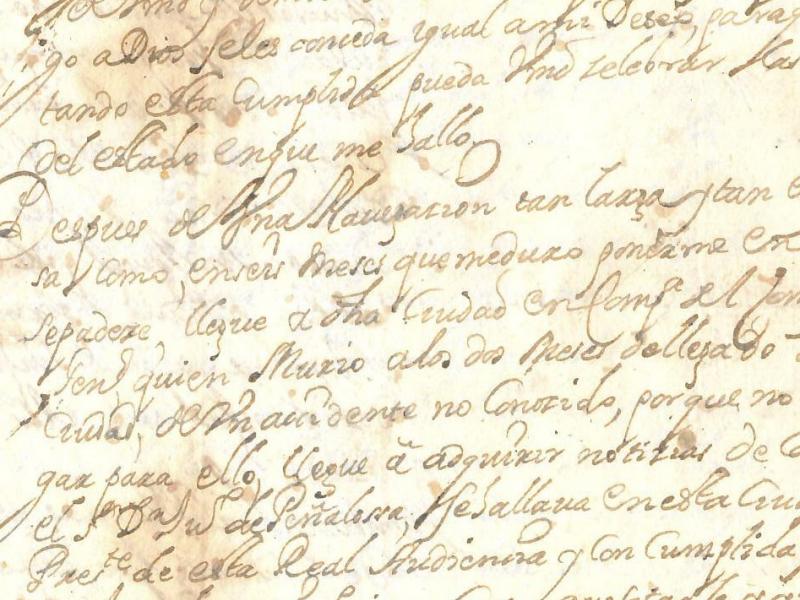 go a Dios se les conceda igual a mi Deseo, para q
tando esta Cumplida pueda Vmd selebrar las
del estado en que me hallo
Despues de Vna Navegacion tan larga y tan
sa como, en seis Meses que me duro ponerme en
sepadeze, llegue a dha Ciudad en Compª del
Then.e quien Murio a los dos Meses de llegado
Ciudad, de Vn accidente no Conosido, porque no
gar para ello, llegue â adquirir notizias de
el Sr Dn Ju.º de Peñalossa, se hallaua en esta Ciu
Pres.te de esta Real Audiencia y con Cumplida